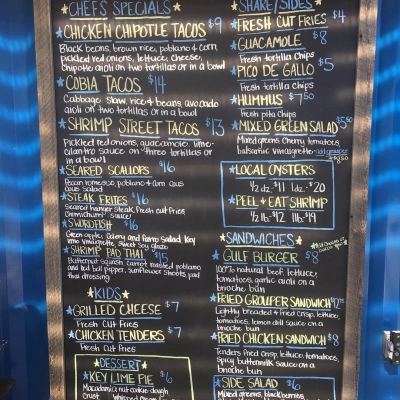 CHEFS SPECIALS
CHICKEN CHIPOTLE TACOS $9
Black beans, brown rice, poblano & corn,
pickled red onions, lettuce, cheese,
chipotle aioli on two tortillas or in a bowl
COBIA TACOS $14
Cabbage slaw, rice & beans, avocado
aioli on two tortillas or in a bowl
SHRIMP STREET TACOS $13
Pickled red onions, guacamole, lime-
cilantro sauce on three tortillas or
in a bowl
SEARED SCALLOPS $16
Pecan romesco, poblano & corn cous
cous salad
STEAK FRITES $16
Seared hanger steak, fresh cut fries,
Chimichurri sauce
SWORDFISH $16
Green apple, celery and farro salad, key
lime vinaigrette, sweet soy glaze
SHRIMP PAD THAI $15
Butternut squash, carrot, roasted poblano
and red bell pepper, sunflower shoots, pad
thai dressing
KIDS
GRILLED CHEESE $7
Fresh Cut Fries
CHICKEN TENDERS $7
Fresh Cut Fries
DESSERT
KEY LIME PIE $6
Macadamia nut cookie dough
Crust
SHARE/SIDES
FRESH CUT FRIES $4
GUACAMOLE $8
Fresh tortilla Chips
PICO DE GALLO $5
Fresh tortilla Chips
HUMMUS $7.50
Fresh pita Chips
MIXED GREEN SALAD $5.50
Mixed greens, Cherry tomatoes,
balsamic vinaigrette
LOCAL OYSTERS
1/2 dz. $11 1dz. $20
PEEL & EAT SHRIMP
1/2 lb. $12 1lb. $19
SANDWICHES
GULF BURGER $8
100% natural beef, lettuce,
tomatoes, garlic aioli on a
brioche bun
FRIED GROUPER SANDWICH
Lightly breaded & fried crisp, lettuce,
tomatoes, lemon dill sauce on a
brioche bun
FRIED CHICKEN SANDWICH $8
Tenders fried crisp, lettuce, tomatoes,
Spicy buttermilk sauce on a
brioche bun
SIDE SALAD $6
Mixed greens, blackberries